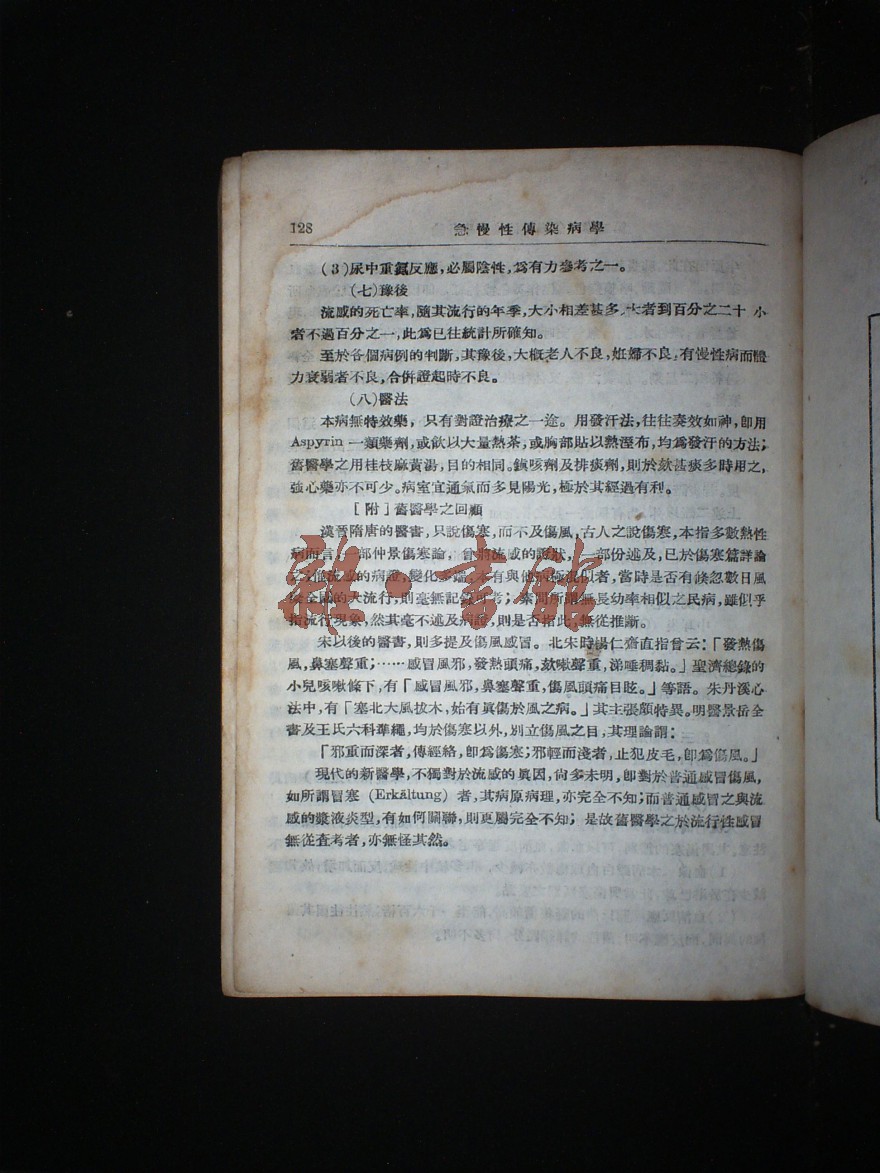 128
急慢性傳染病學
(3)尿中重氮反應,必屬陰性,爲有力參考之一。
(七)豫後
流感的死亡率,隨其流行的年季,大小相差甚多,大者到百分之二十 小
者不過百分之一,此爲已往統計所確知。
至於各個病例的判斷,其豫後,大概老人不良,姙婦不良,有慢性病而體
力衰弱者不良,合併證起時不良。
(八)醫法
本病無特效藥,只有對證治療之一途。用發汗法,往往奏效如神,卽用
Aspyrin 一類藥劑,或飲以大量熱茶,或胸部貼以熱溼布,均爲發汗的方法;
舊醫學之用桂枝麻黃湯,目的相同。鎮咳劑及排痰劑,則於欬甚痰多時用之,
強心藥亦不可少。病室宜通氣而多見陽光,極於其經過有利。
[附]舊醫學之回顧
漢晉隋唐的醫書,只說傷寒,而不及傷風,古人之說傷寒,本指多數熱性
病而言,一部仲景傷寒論,曾將流感的證狀,一部份述及,已於傷寒篇詳論
之;惟流感的病證,變化多端,本有與他病極混似者,當時是否有倏忽數日風
全國的大流行,則毫無記錄可考;素問所謂無長幼率相似之民病,雖似乎
指流行現象,然其毫不述及病證,則是否指此,無從推斷。
宋以後的醫書,則多提及傷風感冒。北宋時楊仁齋直指曾云:「發熱傷
風,鼻塞聲重;……感冒風邪,發熱頭痛,欬嗽聲重,涕唾稠黏。」聖濟總錄的
小兒咳嗽條下,有「感冒風邪,鼻塞聲重,傷風頭痛目眩。」等語。朱丹溪心
法中,有「塞北大風拔木,始有眞傷於風之病。」其主張頗特異。明醫景岳全
書及王氏六科準繩,均於傷寒以外,別立傷風之目,其理論謂:
「邪重而深者,傳經絡,卽爲傷寒;邪輕而淺者,止犯皮毛,卽爲傷風。」
現代的新醫學,不獨對於流感的眞因,尙多未明,卽對於普通感冒傷風,
如所謂冒寒 (Erkältung) 者,其病原病理,亦完全不知;而普通感冒之與流
感的漿液炎型,有如何關聯,則更屬完全不知;是故舊醫學之於流行性感冒
無從查考者,亦無怪其然。
雜·書館